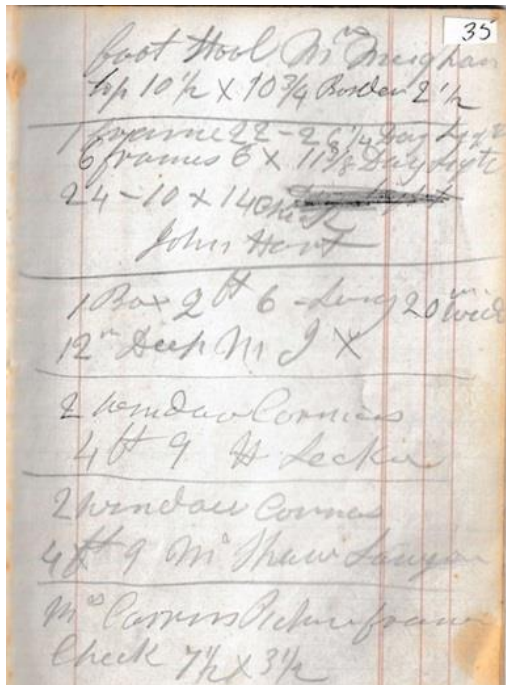 35
foot Stool Mrs Meighan
top 10 1/2 X 10 3/4 Border 2 1/2
1 frame 22 - 26 1/4 Day Light
6 frames 6 X 11 3/8 Day Light
24 - 10 X 14
John Hart
1 Box 2 ft 6 - Long 20 in wide
12 in Deep M J X
2 window Cornices
4 ft 9 H Leckie
2 window Cornices
4 ft 9 Mr Shaw
Mrs Picture frame
Check 7 1/2 X 3 1/2